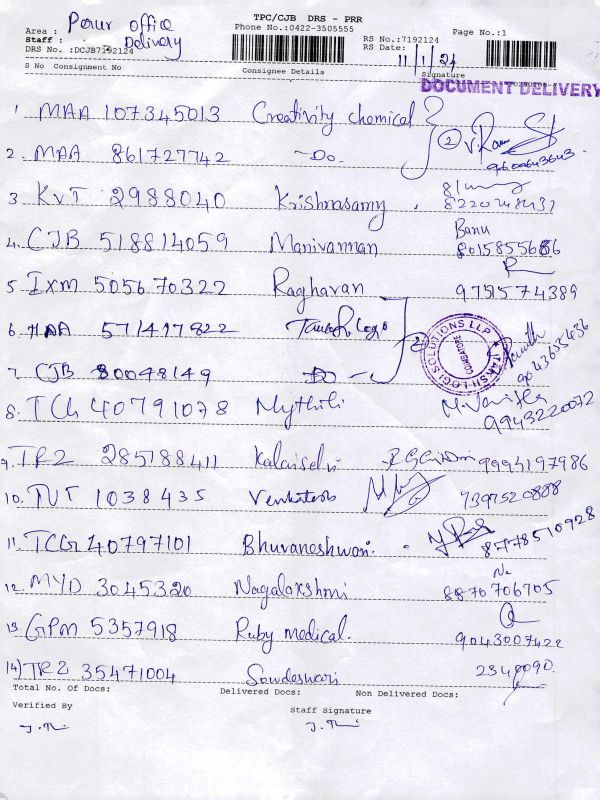 TPC/CJB DRS - PRR
Area : Perur office
Phone No.:0422-3505555
Page No.:1
Staff : Delivery
RS No.:7192124
DRS No. :DCJB7192124
RS Date: 11/1/24
S No Consignment No Consignee Details Signature
DOCUMENT DELIVERY
1 MAA 107345013 Creativity chemical
2. MAA 861727742 -Do. 2 9600643643
3 KVT 2988040 Krishnasamy
4. CJB 518814059 Manivannan Banu 8015855686
5 IXM 505670322 Raghavan 9751574389
6 MAA 571497822
7. CJB 80048149 -Do-
TAKSH LOGI SOLUTIONS LLP
COIMBATORE
8. TCG 40791078 Mythili 9943220072
9. TRZ 285188411 Kalaiselvi 9994197986
10. TUT 1038435 Venkatesh 7397520888
11. TCG 40797101 Bhuvaneshwari. 8778510928
12. MYD 3045320 Nagalakshmi 8870706705
13. GPM 5357918 Ruby medical. 9043007422
14) TRZ 35471004 Sowdeswari
Total No. Of Docs: Delivered Docs: Non Delivered Docs:
Verified By Staff Signature